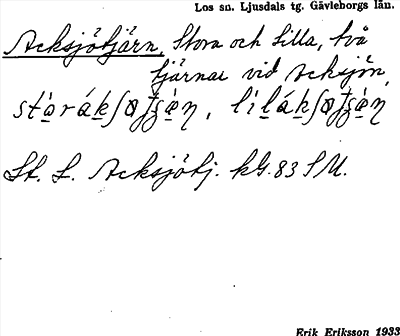 Los sn. Ljusdals tg. Gävleborgs län.
Acksjötjärn, Stora och Lilla, två
tjärnar vid Acksjön,
St. L. Acksjötj. kG. 83 SU.
Erik Eriksson 1933